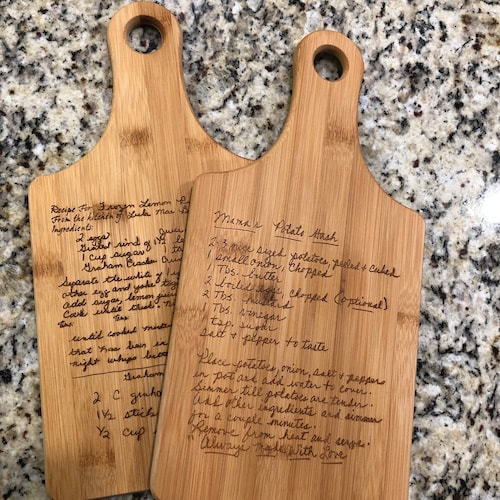 Recipe For Frozen Lemon
From the kitchen of Lula Mae
Ingredients:
2 eggs
Grated rind of 1½
1 cup sugar
Graham Cracker
Separate the white of 1
other egg and yolks
add sugar, lemon juice
Cook until thick.
until cooked
that has been in
night whips
Graham
2 C graham
1½ sticks
½ cup
Mama's Potato Hash
2-3 nice sized potatoes, peeled & cubed
1 small onion, chopped
1 Tbs. butter
2 boiled eggs, chopped (optional)
2 Tbs. mustard
1 Tbs. vinegar
1 tsp. sugar
Salt & pepper to taste
Place potatoes, onion, salt & pepper
in pot and add water to cover.
Simmer till potatoes are tender.
Add other ingredients and simmer
for a couple minutes.
Remove from heat and serve.
"Always Made With Love"